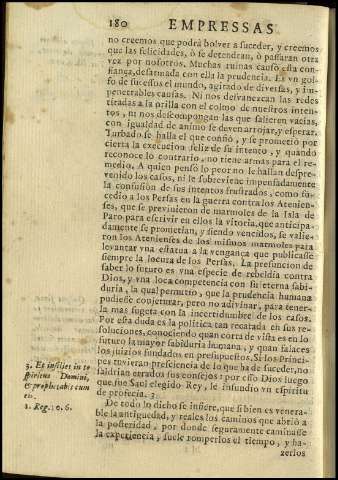 180 EMPRESSAS
no creemos que podrà bolver a suceder, y creemos
que las felicidades, ò se detendràn, ò passaràn otra
vez por nosotros. Muchas ruinas causò esta con-
fiança, desarmada con ella la prudencia. Es vn gol-
fo de sucessos el mundo, agitado de diversas, y im-
penetrables causas. Ni nos desvanezcan las redes
tiradas a la orilla con el colmo de nuestros inten-
tos, ni nos descompongan las que salieren vacias,
con igualdad de animo se deven arrojar, y esperar.
Turbado se halla el que confiò, y se prometio por
cierta la execucion feliz de su intento, y quando
reconoce lo contrario, no tiene armas para el re-
medio. A quien pensò lo peor no le hallan despre-
venido los casos, ni le sobreviene impensadamente
la confusion de sus intentos frustrados, como su-
cedio a los Persas en la guerra contra los Atenien-
ses, que se previnieron de marmoles de la Isla de
Paro para escrivir en ellos la vitoria, que anticipa-
damente se prometian, y siendo vencidos, se valie-
ron los Atenienses de los mismos marmoles para
levantar vna estatua a la vengança que publicasse
siempre la locura de los Persas. La presuncion de
saber lo futuro es vna especie de rebeldia contra
Dios, y vna loca competencia con su eterna sabi-
duria, la qual permitio, que la prudencia humana
pudiesse conjeturar, pero no adivinar, para tener-
la mas sugeta con la incertidumbre de los casos.
Por esta duda es la politica tan recatada en sus re-
soluciones, conociendo quan corta de vista es en lo
futuro la mayor sabiduria humana, y quan falaces
los juizios fundados en presupuestos. Si los Princi-
pes tuvieran presciencia de lo que ha de suceder, no
saldrian errados sus consejos: por esso Dios luego
que fue Saul elegido Rey, le infundio vn espiritu
de profecia. 3
De todo lo dicho se infiere, que si bien es venera-
ble la antiguedad, y reales los caminos que abriò a
la posteridad, por donde seguramente caminasse
la experiencia, suele romperlos el tiempo, y ha-
zerlos
3. Et insiliet in te
spiritus Domini,
& prophetabis cum
eis.
1. Reg. 10. 6.